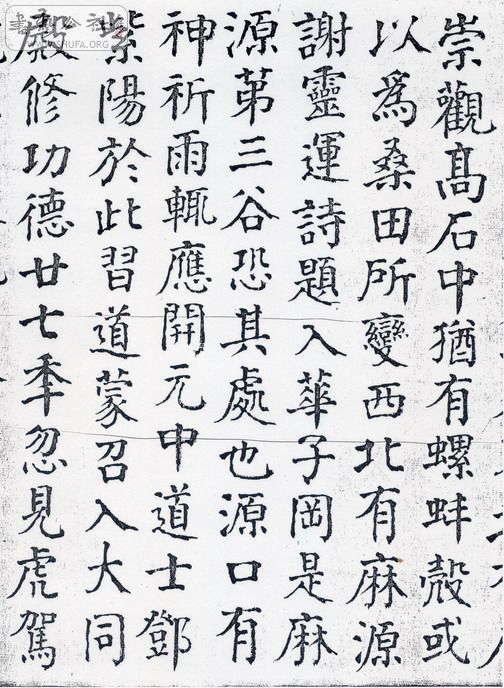 崇觀髙石中猶有螺蚌殼或
以爲桑田所變西北有麻源
謝靈運詩題入華子岡是麻
源苐三谷恐其處也源口有
神祈雨輒應開元中道士鄧
紫陽於此習道蒙召入大同
殿修功德廿七秊忽見虎駕